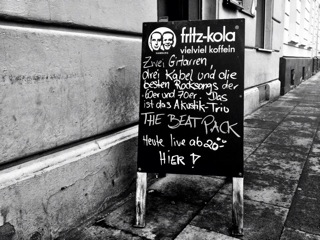 fritz-kola®
vielviel koffein
Zwei Gitarren,
drei Kabel und die
besten Rocksongs der
60er und 70er. Das
ist das Akustik-Trio
THE BEAT PACK
Heute live ab 20:00
HIER!